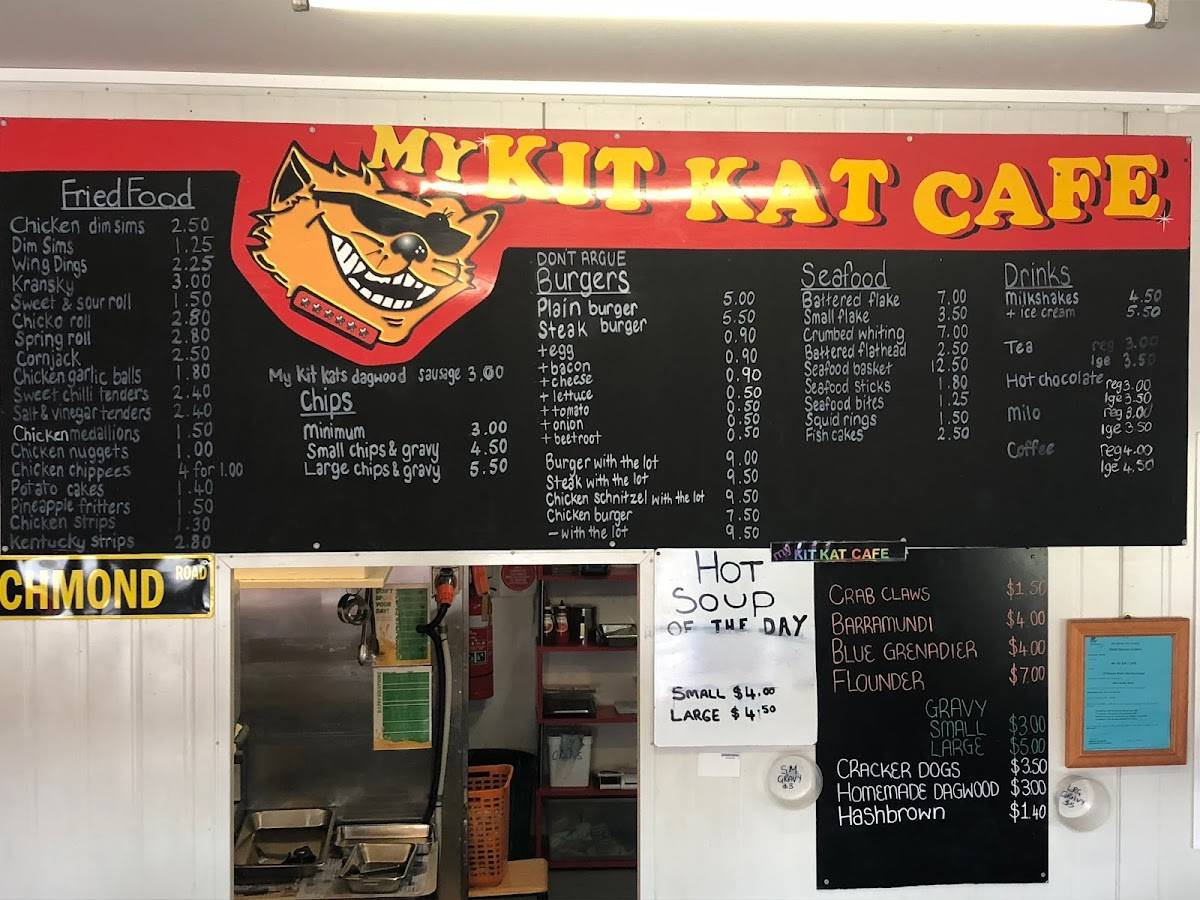 MY KIT KAT CAFE
Fried Food
Chicken dim sims 2.50
Dim Sims 1.25
Wing Dings 2.25
Kransky 3.00
Sweet & sour roll 1.50
Chicko roll 2.80
Spring roll 2.80
Cornjack 2.50
Chicken garlic balls 1.80
Sweet chilli tenders 2.40
Salt & vinegar tenders 2.40
Chicken medallions 1.50
Chicken nuggets 1.00
Chicken chippees 4 for 1.00
Potato cakes 1.40
Pineapple fritters 1.50
Chicken strips 1.30
Kentucky strips 2.80
My Kit kats dagwood sausage 3.00
Chips
Minimum 3.00
Small chips & gravy 4.50
Large chips & gravy 5.50
DON'T ARGUE
Burgers
Plain burger 5.00
Steak burger 5.50
+ egg 0.90
+ bacon 0.90
+ cheese 0.90
+ lettuce 0.50
+ tomato 0.50
+ onion 0.50
+ beetroot 0.50
Burger with the lot 9.00
Steak with the lot 9.50
Chicken schnitzel with the lot 9.50
Chicken burger 7.50
- with the lot 9.50
Seafood
Battered flake 7.00
Small flake 3.50
Crumbed whiting 7.00
Battered flathead 2.50
Seafood basket 12.50
Seafood sticks 1.80
Seafood bites 1.25
Squid rings 1.50
Fish cakes 2.50
Drinks
Milkshakes 4.50
+ ice cream 5.50
Tea reg 3.00
lge 3.50
Hot chocolate reg 3.00
lge 3.50
Milo reg 3.00
lge 3.50
Coffee reg 4.00
lge 4.50
CHMOND ROAD
HOT
SOUP
OF THE DAY
SMALL $4.00
LARGE $4.50
my KIT KAT CAFE
CRAB CLAWS $1.50
BARRAMUNDI $4.00
BLUE GRENADIER $4.00
FLOUNDER $7.00
GRAVY
SMALL $3.00
LARGE $5.00
CRACKER DOGS $3.50
HOMEMADE DAGWOOD $3.00
Hashbrown $1.40
SM
GRAVY
$3
LRG
GRAVY
$5